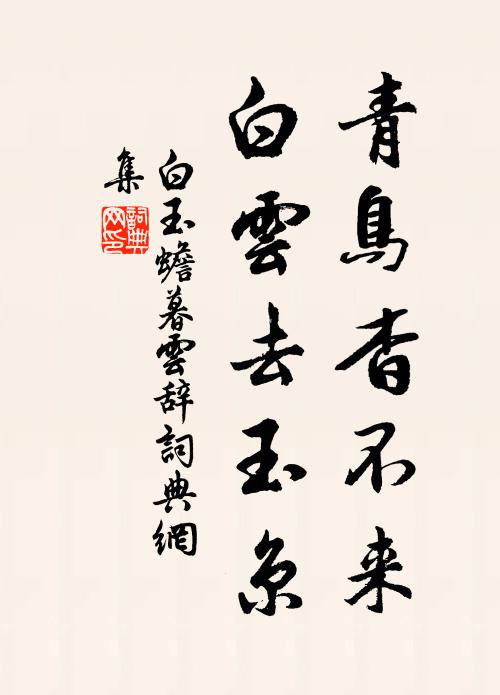 青鳥杳不来
白雲去玉京
白玉蟾暮雲辞詞典網
集
詞典
网印